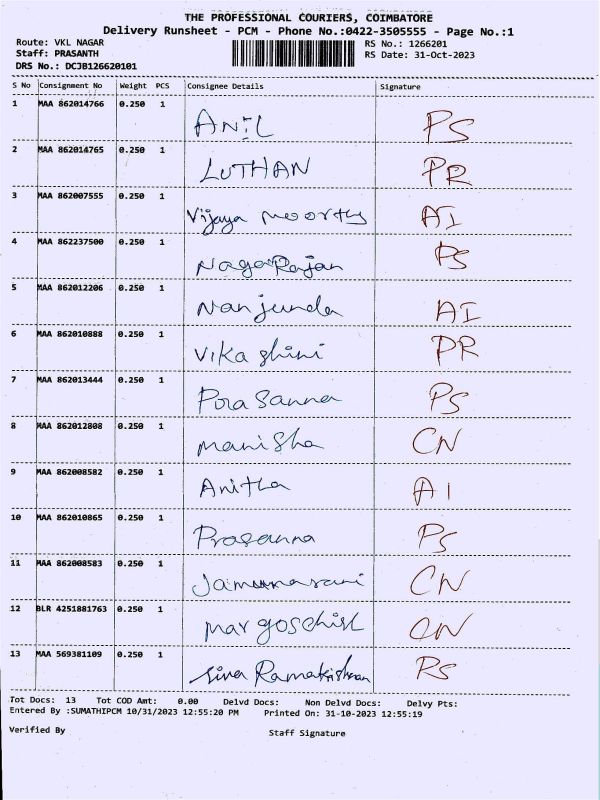 THE PROFESSIONAL COURIERS, COIMBATORE
Delivery Runsheet - PCM - Phone No.:0422-3505555 - Page No.:1
Route: VKL NAGAR RS No.: 1266201
Staff: PRASANTH RS Date: 31-Oct-2023
DRS No.: DCJB126620101
S No Consignment No Weight PCS Consignee Details Signature
1 MAA 862014766 0.250 1 ANIL PS
2 MAA 862014765 0.250 1 LUTHAN PR
3 MAA 862007555 0.250 1 Vijaya moorthy AI
4 MAA 862237500 0.250 1 NagaRajan PS
5 MAA 862012206 0.250 1 Nanjunda AI
6 MAA 862010888 0.250 1 Vikashini PR
7 MAA 862013444 0.250 1 Prasanna PS
8 MAA 862012808 0.250 1 Manisha CN
9 MAA 862008582 0.250 1 Anitha AI
10 MAA 862010865 0.250 1 Prasanna PS
11 MAA 862008583 0.250 1 Jamunarani CN
12 BLR 4251881763 0.250 1 Margoschisl CN
13 MAA 569381109 0.250 1 Siva Ramakrishnan PS
Tot Docs: 13 Tot COD Amt: 0.00 Delvd Docs: Non Delvd Docs: Delvy Pts:
Entered By :SUMATHIPCM 10/31/2023 12:55:20 PM Printed On: 31-10-2023 12:55:19
Verified By Staff Signature